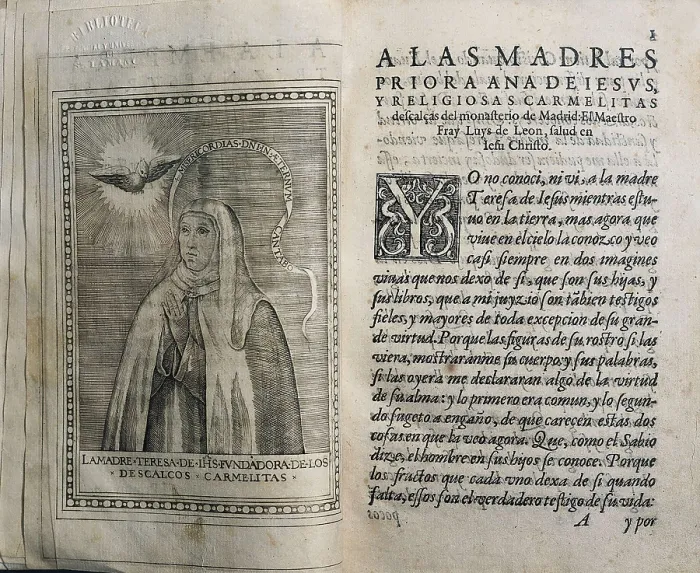 BIBLIOTECA
MISERICORDIAS·DÑI·IN ÆTERNVM CANTABO
LA MADRE·TERESA·DE·IHS·FVNDADORA·DE·LOS
·DESCALCOS·CARMELITAS·
1
A LAS MADRES
PRIORA ANA DE IESVS,
Y RELIGIOSAS CARMELITAS
descalças del monasterio de Madrid: El Maestro
Fray Luys de Leon, salud en
Iesu Christo.
YO no conoci, ni vi, a la madre
Teresa de Iesus mientras estu-
uo en la tierra, mas agora que
viue en el cielo la conozco y veo
casi siempre en dos imagines
viuas que nos dexo de si, que son sus hijas, y
sus libros, que a mi juyzio son tãbien testigos
fieles, y mayores de toda excepcion de su gran-
de virtud. Porque las figuras de su rostro si las
viera, mostraranme su cuerpo, y sus palabras,
si las oyera me declararan algo de la virtud
de su alma: y lo primero era comun, y lo segun-
do sugeto a engaño, de que carecen estas dos
cosas en que la veo agora. Que, como el Sabio
dize, el hombre en sus hijos se conoce. Porque
los fructos que cada vno dexa de si quando
falta, essos son el verdadero testigo de su vida:
A y por